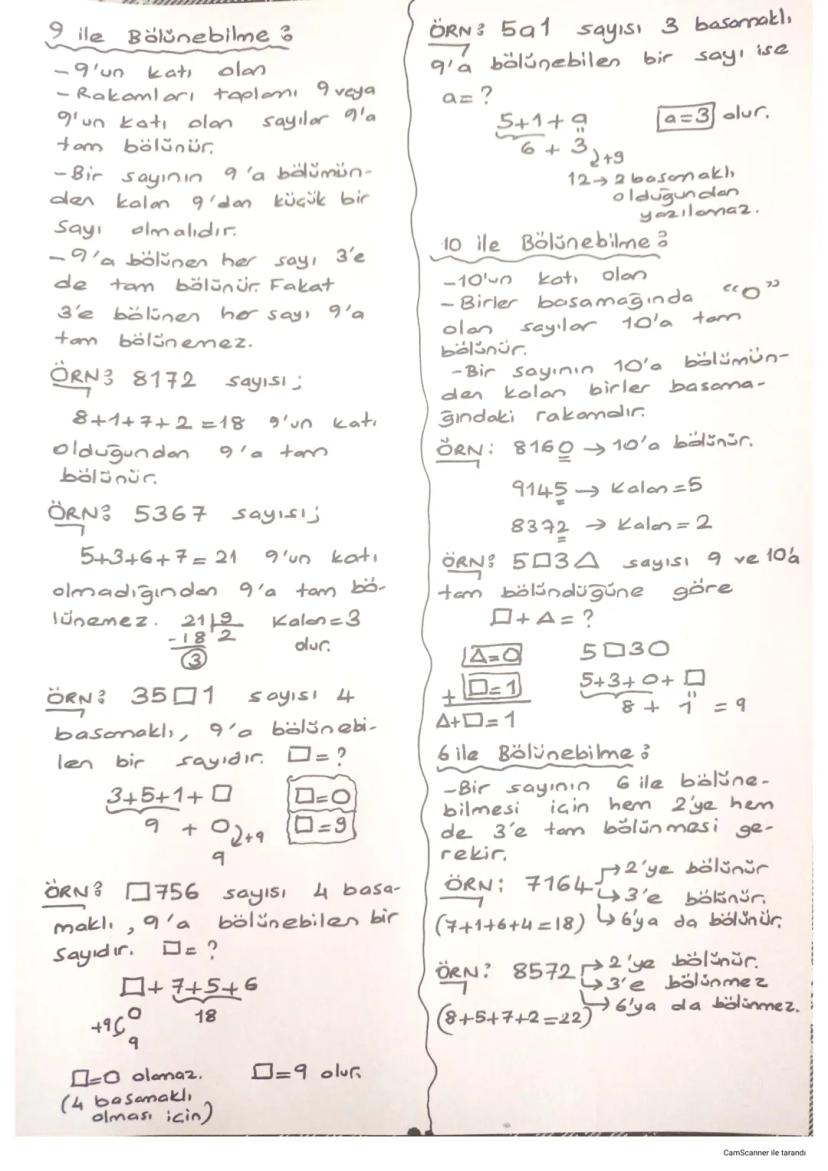 9 ile Bölünebilme :
-9'un katı olan
- Rakamları toplamı 9 veya
9'un katı olan sayılar 9'a
tam bölünür.
-Bir sayının 9'a bölümün-
den kalan 9'dan küçük bir
sayı olmalıdır.
-9'a bölünen her sayı 3'e
de tam bölünür. Fakat
3'e bölünen her sayı 9'a
tam bölünemez.
ÖRN: 8172 sayısı;
8+1+7+2=18 9'un katı
olduğundan 9'a tam
bölünür.
ÖRN: 5367 sayısı;
5+3+6+7=21 9'un katı
olmadığından 9'a tam bö-
lünemez. 21|9 Kalan=3
-18 2 olur.
3
ÖRN: 35□1 sayısı 4
basamaklı, 9'a bölünebi-
len bir sayıdır. □=?
3+5+1+□ □=0
9 + 0 +9 □=9
9
ÖRN: □756 sayısı 4 basa-
maklı, 9'a bölünebilen bir
sayıdır. □=?
□+7+5+6
+9 0 18
9
□=0 olamaz. □=9 olur.
(4 basamaklı
olması için)
ÖRN: 5a1 sayısı 3 basamaklı
9'a bölünebilen bir sayı ise
a=?
5+1+a a=3 olur.
6 + 3 +9
12→2 basamaklı
olduğundan
yazılamaz.
10 ile Bölünebilme :
-10'un katı olan
- Birler basamağında "0"
olan sayılar 10'a tam
bölünür.
-Bir sayının 10'a bölümün-
den kalan birler basama-
ğındaki rakamdır.
ÖRN: 8160 → 10'a bölünür.
9145 → Kalan=5
8372 → Kalan=2
ÖRN: 5□3△ sayısı 9 ve 10'a
tam bölündüğüne göre
□+△=?
△=0 5□30
+ □=1 5+3+0+□
△+□=1 8 + 1 = 9
6 ile Bölünebilme :
-Bir sayının 6 ile bölüne-
bilmesi için hem 2'ye hem
de 3'e tam bölünmesi ge-
rekir.
ÖRN: 7164 →2'ye bölünür
→3'e bölünür.
(7+1+6+4=18) →6'ya da bölünür.
ÖRN: 8572 →2'ye bölünür.
→3'e bölünmez
(8+5+7+2=22) →6'ya da bölünmez.
CamScanner ile tarandı